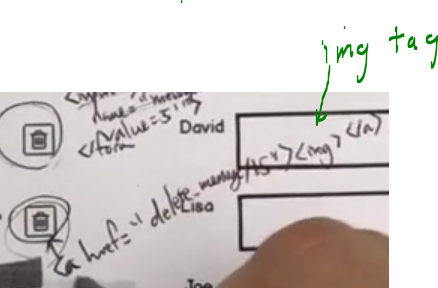 img tag
<input
name="message
value=5">
</form
David
<a href="/delete_message/15"><img></a>
Lisa
Joe